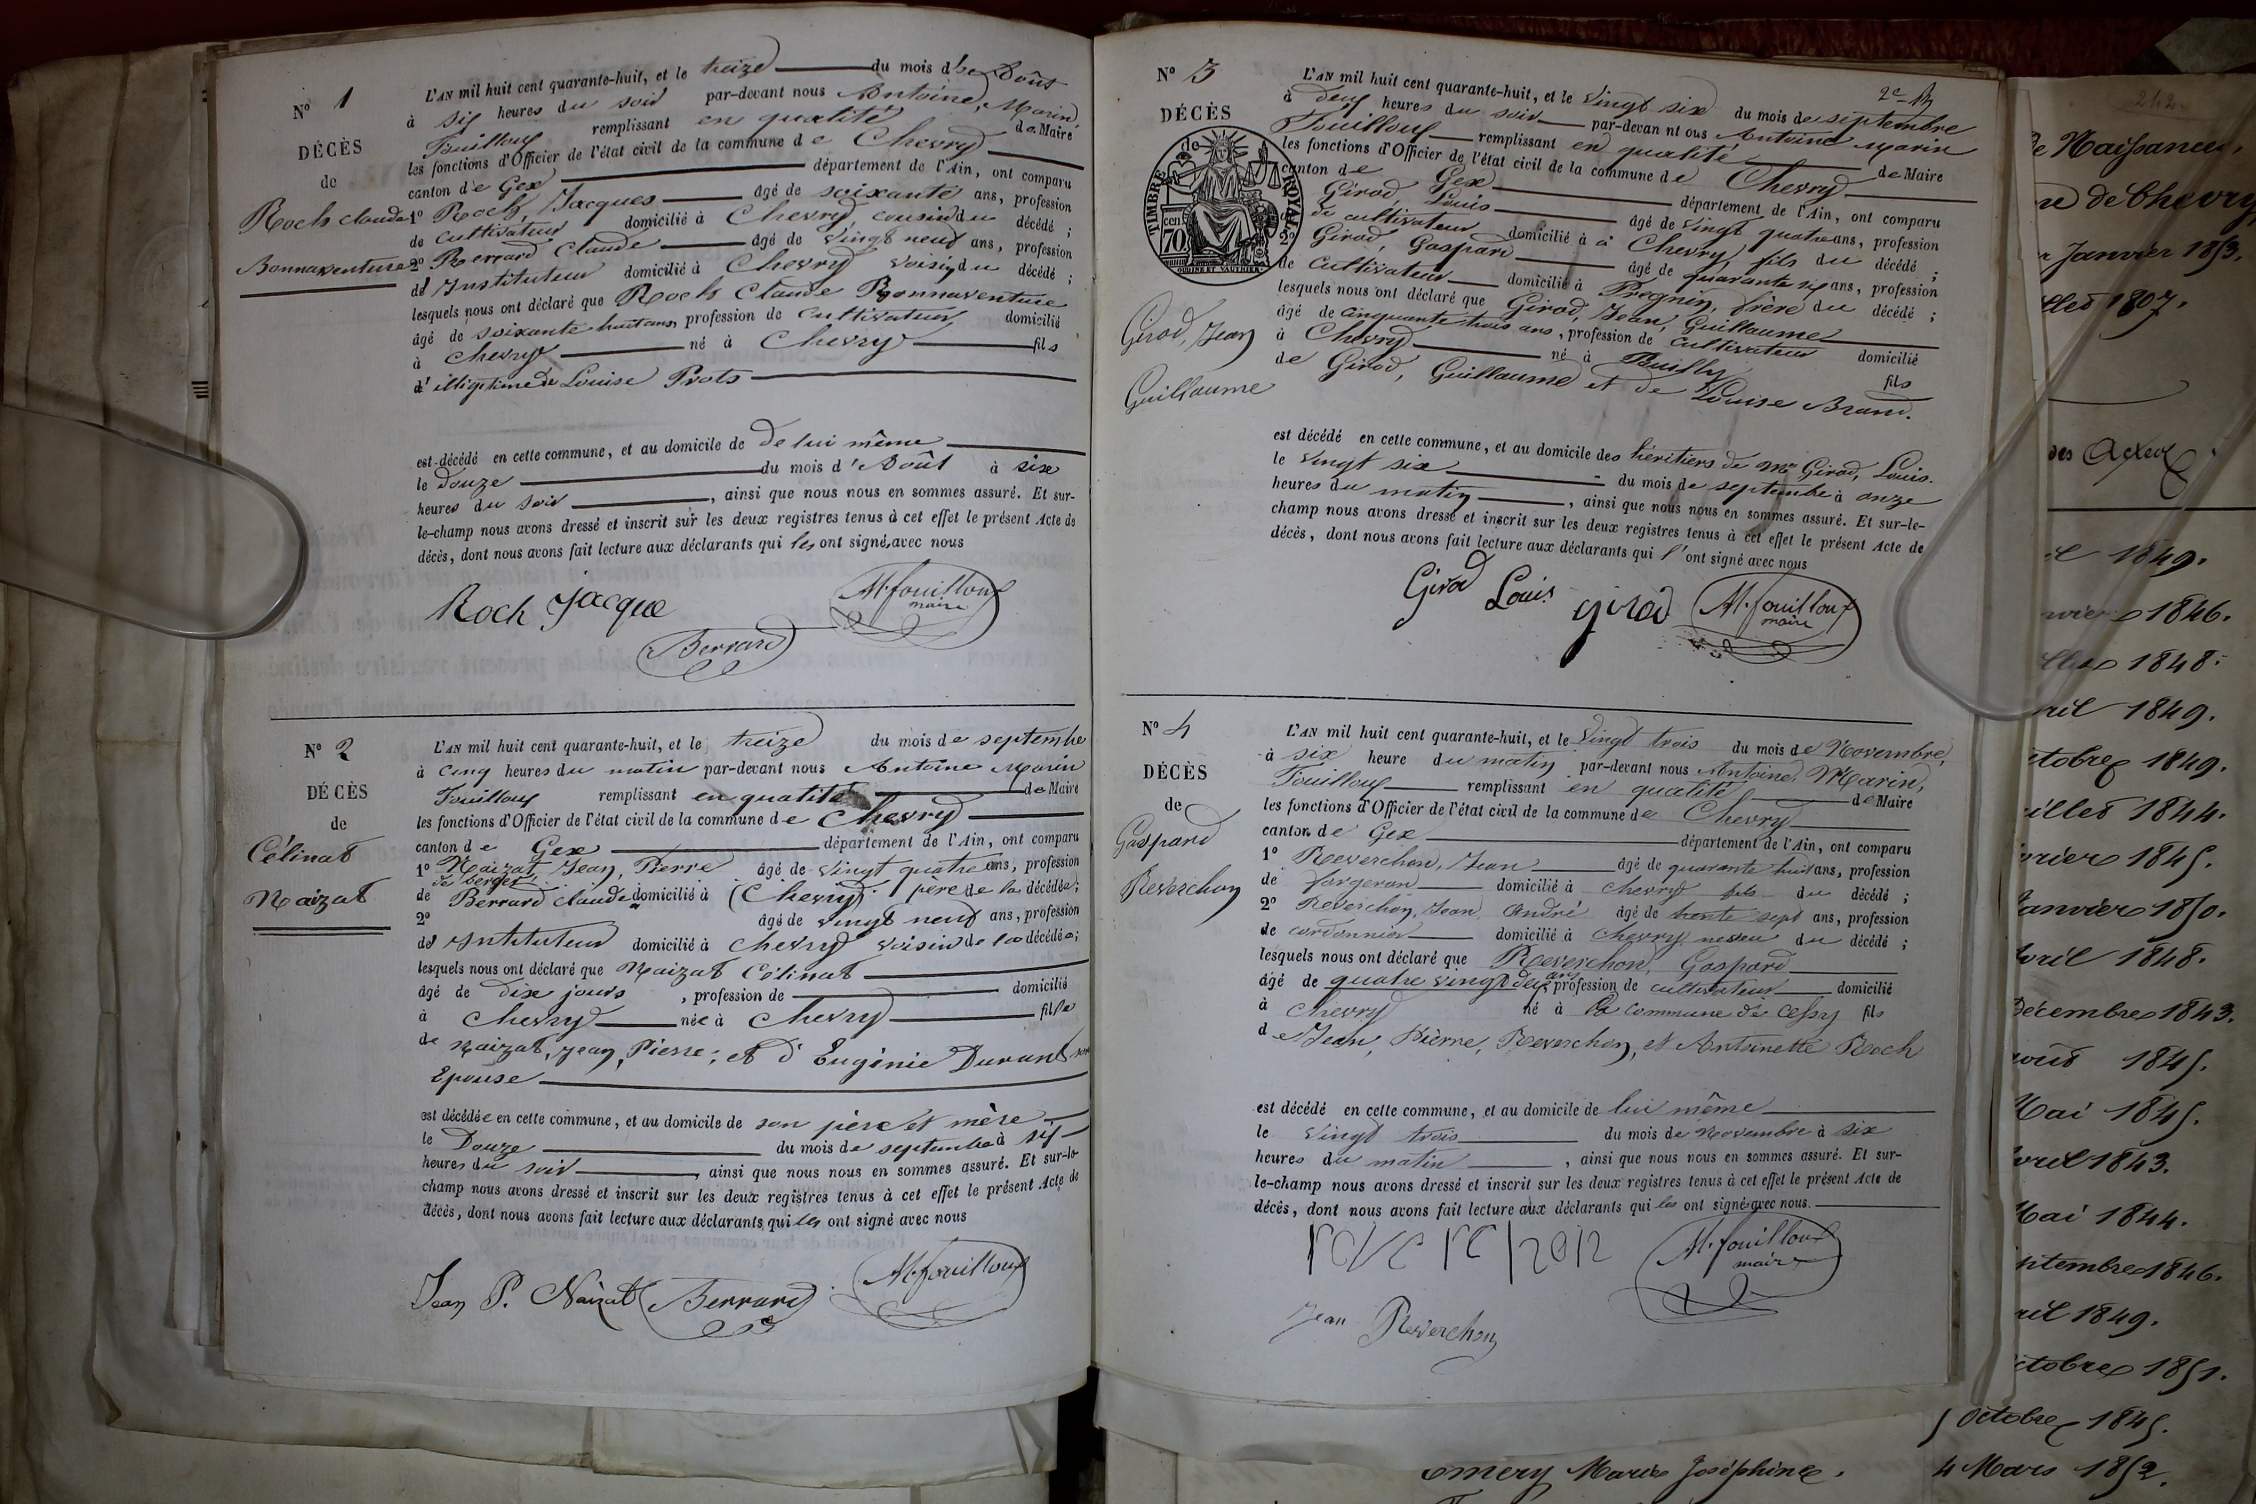 N° 1
DÉCÈS
de
Roch Claude
Bonnaventure
L'AN mil huit cent quarante-huit, et le treize du mois d' Août
à six heures du soir par-devant nous Antoine, Marin,
Fouilloux remplissant en qualité de Maire
les fonctions d'Officier de l'état civil de la commune de Chevry
canton de Gex département de l'Ain, ont comparu
1° Roch, Jacques âgé de soixante ans, profession
de cultivateur domicilié à Chevry, cousin du décédé ;
2° Berrard Claude âgé de vingt neuf ans, profession
d'Instituteur domicilié à Chevry voisin du décédé ;
lesquels nous ont déclaré que Roch Claude Bonnaventure
âgé de soixante huit ans, profession de cultivateur, domicilié
à Chevry né à Chevry fils
d'illigitime de Louise Prots
est décédé en cette commune, et au domicile de de lui même
le Douze du mois d'Août à six
heures du soir, ainsi que nous nous en sommes assuré. Et sur-
le-champ nous avons dressé et inscrit sur les deux registres tenus à cet effet le présent Acte de
décès, dont nous avons fait lecture aux déclarants qui les ont signé avec nous
Roch Jacque
M. fouilloux
maire
Berrard
N° 2
DÉCÈS
de
Célinat
Naizat
L'AN mil huit cent quarante-huit, et le treize du mois de septembre
à cinq heures du matin par-devant nous Antoine Marin
Fouilloux remplissant en qualité de Maire
les fonctions d'Officier de l'état civil de la commune de Chevry
canton de Gex département de l'Ain, ont comparu
1° Naizat, Jean, Pierre âgé de vingt quatre ans, profession
de berger
de Berrard Claude domicilié à (Chevry) père de la décédée ;
2° âgé de vingt neuf ans, profession
d'Instituteur domicilié à Chevry voisin de la décédée ;
lesquels nous ont déclaré que Naizat Célinat
âgé de dix jours, profession de domicilié
à Chevry née à Chevry fille
de Naizat, Jean, Pierre, et d'Eugénie Durand son
Epouse
est décédée en cette commune, et au domicile de son père et mère
le Douze du mois de septembre à six
heures du soir, ainsi que nous nous en sommes assuré. Et sur-le-
champ nous avons dressé et inscrit sur les deux registres tenus à cet effet le présent Acte de
décès, dont nous avons fait lecture aux déclarants qui les ont signé avec nous
Jean P. Naizat
Berrard
M. fouilloux
N° 3
DÉCÈS
de
TIMBRE ROYAL
70 cen
Girod, Jean
Guillaume
L'AN mil huit cent quarante-huit, et le vingt six du mois de septembre
à deux heures du soir par-devan nt ous Antoine Marin
Fouilloux remplissant en qualité de Maire
les fonctions d'Officier de l'état civil de la commune de Chevry
canton de Gex département de l'Ain, ont comparu
Girod, Louis âgé de vingt quatre ans, profession
de cultivateur domicilié à à Chevry, fils du décédé ;
2° Girod, Gaspard âgé de quarante six ans, profession
de cultivateur domicilié à Pregnin, frère du décédé ;
lesquels nous ont déclaré que Girod, Jean, Guillaume
âgé de cinquante trois ans, profession de cultivateur domicilié
à Chevry né à fils
de Girod, Guillaume et de Louise Brand.
est décédé en cette commune, et au domicile des héritiers de Mr Girod, Louis.
le vingt six du mois de septembre à onze
heures du matin, ainsi que nous nous en sommes assuré. Et sur-le-
champ nous avons dressé et inscrit sur les deux registres tenus à cet effet le présent Acte de
décès, dont nous avons fait lecture aux déclarants qui l'ont signé avec nous
Girod Louis
girod
M. fouilloux
maire
N° 4
DÉCÈS
de
Gaspard
Reverchon
L'AN mil huit cent quarante-huit, et le vingt trois du mois de Novembre,
à six heure du matin par-devant nous Antoine, Marin,
Fouilloux remplissant en qualité de Maire
les fonctions d'Officier de l'état civil de la commune de Chevry
canton de Gex département de l'Ain, ont comparu
1° Reverchon, Jean âgé de quarante huit ans, profession
de forgeron domicilié à Chevry fils du décédé ;
2° Reverchon, Jean André âgé de trente sept ans, profession
de cordonnier domicilié à Chevry neveu du décédé ;
lesquels nous ont déclaré que Reverchon, Gaspard
âgé de quatre vingt deux ans, profession de cultivateur domicilié
à Chevry né à la commune de Cessy fils
de Jean, Pierre, Reverchon, et Antoinette Roch
est décédé en cette commune, et au domicile de lui même
le vingt trois du mois de Novembre à six
heures du matin, ainsi que nous nous en sommes assuré. Et sur-
le-champ nous avons dressé et inscrit sur les deux registres tenus à cet effet le présent Acte de
décès, dont nous avons fait lecture aux déclarants qui les ont signé avec nous.
M. fouilloux
maire
Jean Reverchon
de Naissances,
de Chevry
Janvier 1853.
1807.
des Actes
1849.
1846.
1848.
1849.
1849.
1844.
1845.
Janvier 1850.
avril 1848.
Décembre 1843.
1845.
Mai 1845.
avril 1843.
Mai 1844.
septembre 1846.
1849.
octobre 1851.
5 octobre 1845.
emery Marie Joséphine. 4 Mars 1852.